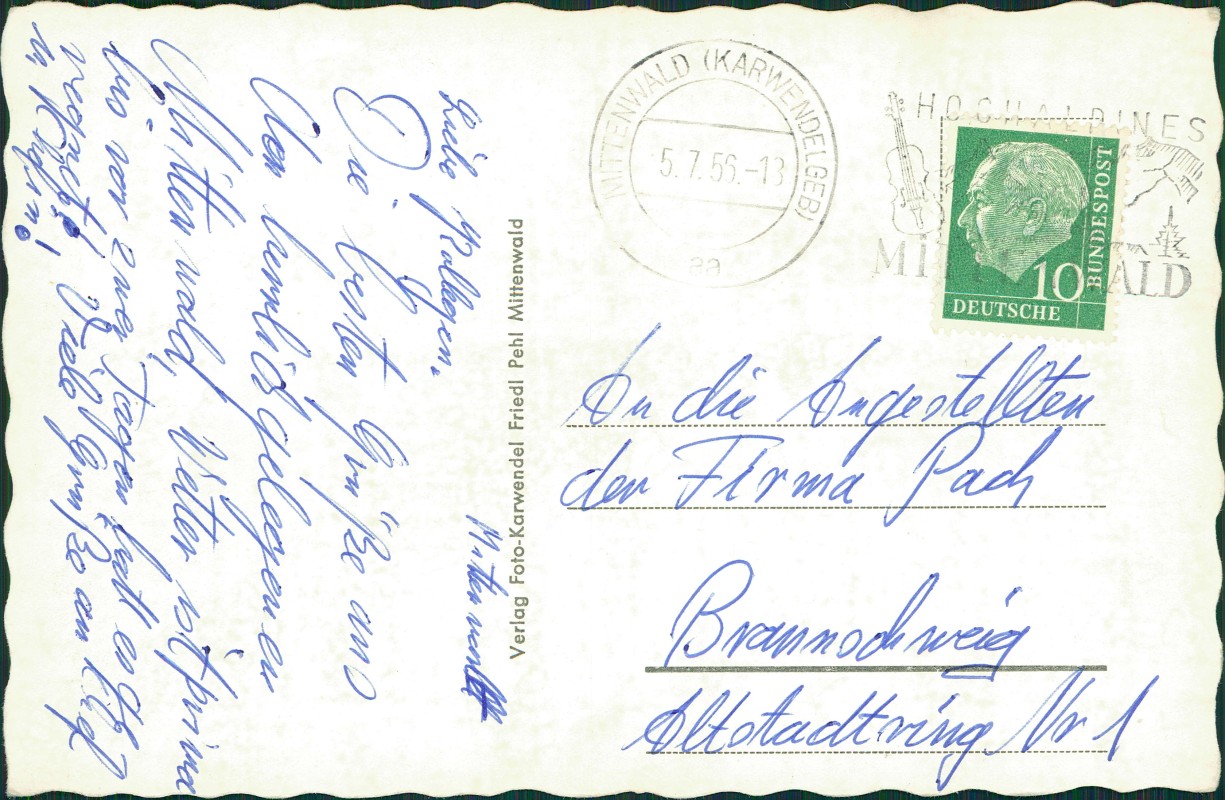 MITTENWALD (KARWENDELGEB)
5.7.56.-18
aa
HOCHALPINES
MI WALD
BUNDESPOST
10
DEUTSCHE
Verlag Foto-Karwendel Friedl Pehl Mittenwald
Mittenwald
Liebe Kollegen.
Die besten Grüße aus
den herrlich gelegenen
Mittenwald, Wetter ist prima
bis vor zwei Tagen hat es
geregnet. Viele Grüße an
An die Angestellten
der Firma Pach
Braunschweig
Altstadtring Nr 1